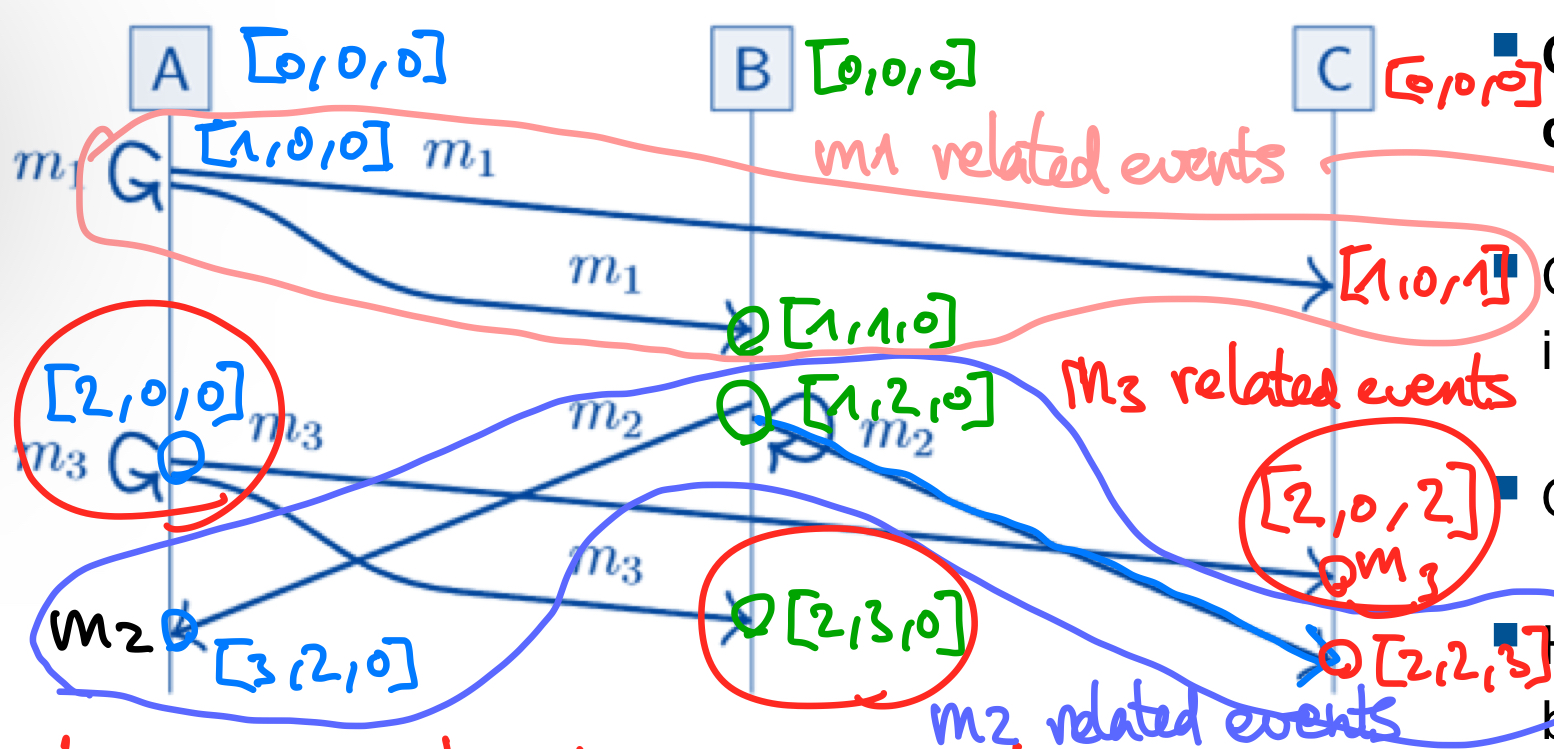 A [0,0,0] B [0,0,0] C [0,0,0]
m1 [1,0,0] m1 m1 related events
m1 [1,0,1]
[1,1,0]
m3 related events
[2,0,0] m3 m2 [1,2,0] m2
m3 [2,0,2]
m3 m3
m2 [2,3,0]
[3,2,0] [2,2,3]
m2 related events